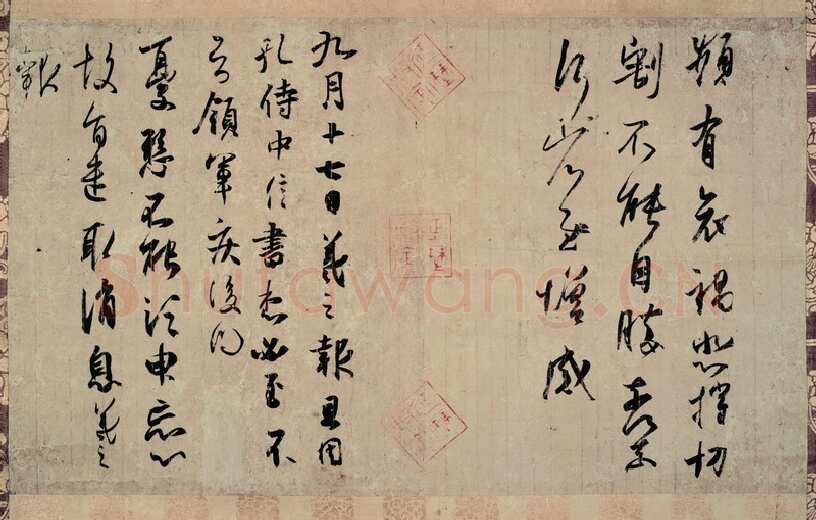 頻有哀禍悲摧切
割不能自勝奈何
奈何省慰增感
九月十七日羲之報且因
孔侍中信書想必至不
知領軍疾後問
憂懸不能須臾忘心
故旨遣取消息羲之
報
Shufawang.CN